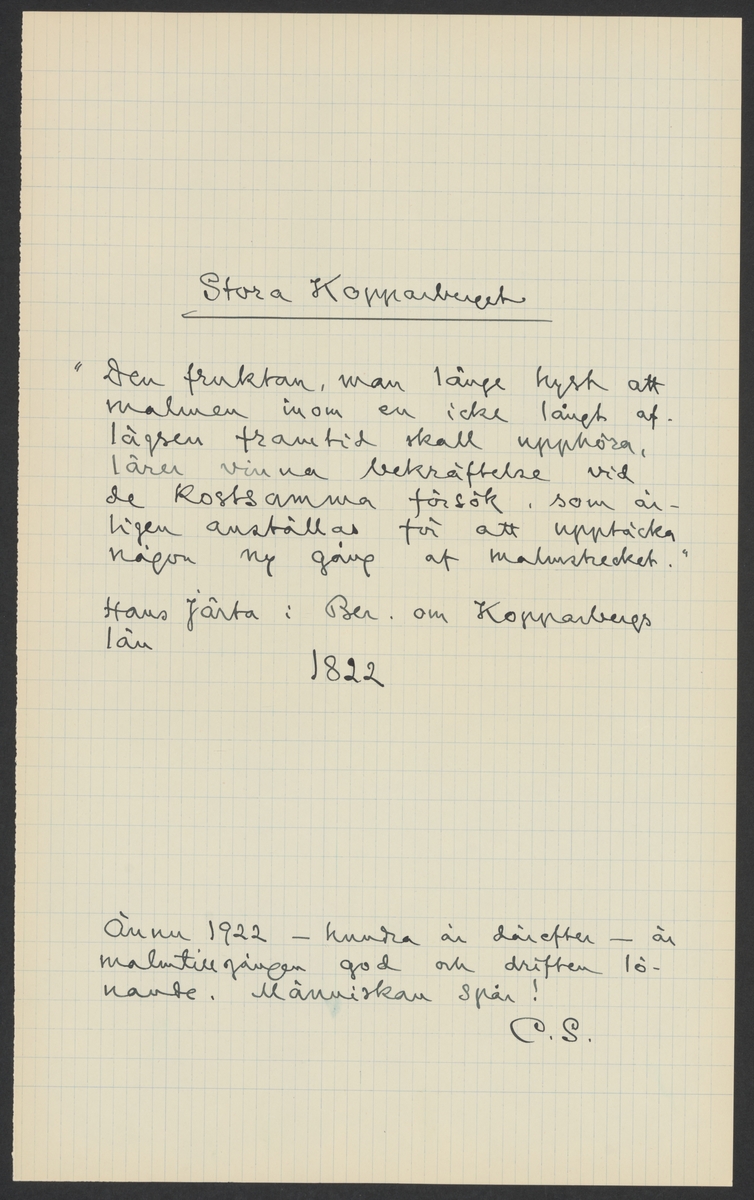 Stora Kopparberget
"Den fruktan, man länge hyst att
malmen inom en icke långt af-
lägsen framtid skall upphöra,
lärer vinna bekräftelse vid
de kostsamma försök, som år-
ligen anställas för att upptäcka
någon ny gång af malmstrecket."
Hans Järta i Ber. om Kopparbergs
län
1822
Ännu 1922 – hundra år därefter – är
malmtillgången god och driften lö-
nande. Människan spår!
C.S.